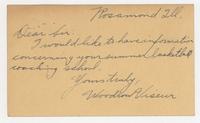 Rosamond Ill.
Dear Sir:
I would like to have information
concerning your summer basketball
coaching school.
Yours truly,
Woodrow Viseur